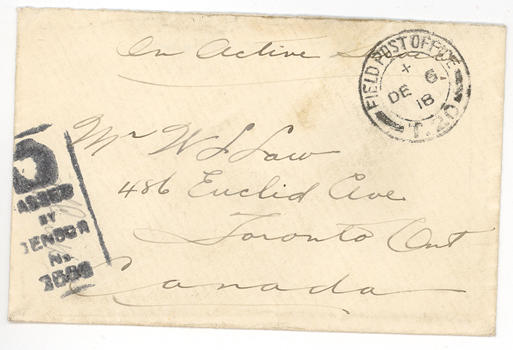 On Active Service
FIELD POST OFFICE
DE 6
18
T.20
Mr W L Law
486 Euclid Ave
Toronto Ont
Canada
ASSED
BY
CENSOR
No